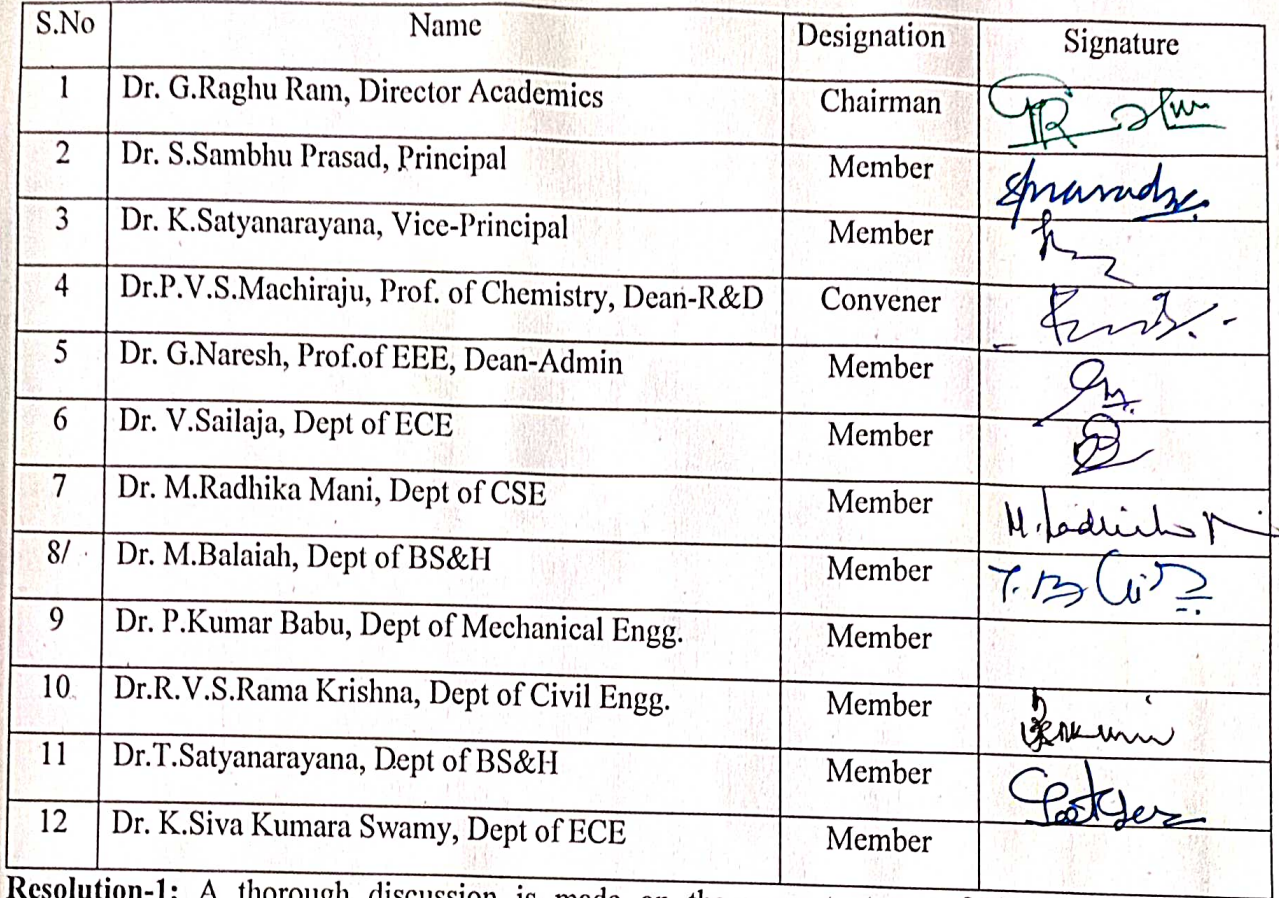 S.No Name Designation Signature
1 Dr. G.Raghu Ram, Director Academics Chairman
2 Dr. S.Sambhu Prasad, Principal Member
3 Dr. K.Satyanarayana, Vice-Principal Member
4 Dr.P.V.S.Machiraju, Prof. of Chemistry, Dean-R&D Convener
5 Dr. G.Naresh, Prof.of EEE, Dean-Admin Member
6 Dr. V.Sailaja, Dept of ECE Member
7 Dr. M.Radhika Mani, Dept of CSE Member
8/ Dr. M.Balaiah, Dept of BS&H Member
9 Dr. P.Kumar Babu, Dept of Mechanical Engg. Member
10 Dr.R.V.S.Rama Krishna, Dept of Civil Engg. Member
11 Dr.T.Satyanarayana, Dept of BS&H Member
12 Dr. K.Siva Kumara Swamy, Dept of ECE Member
Resolution-1: A thorough discussion is made on the